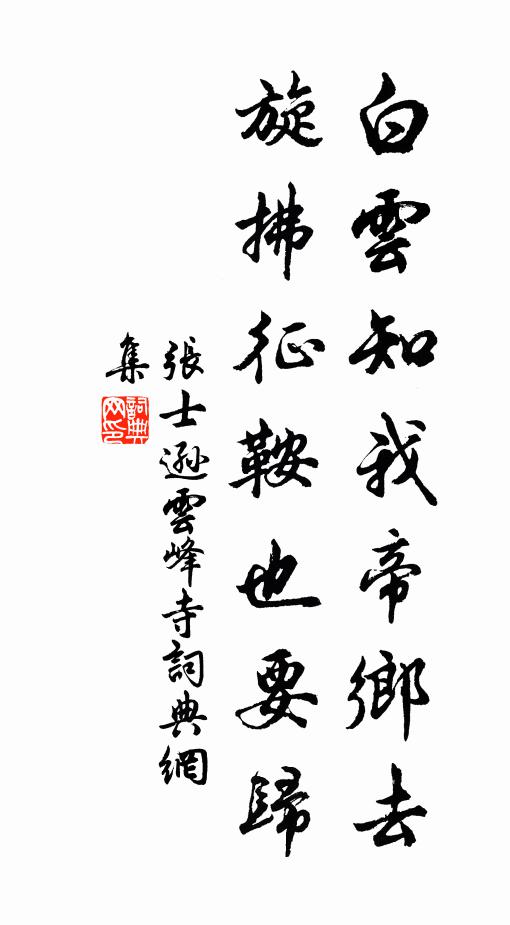 白雲知我帝鄉去
旋拂征鞍也要歸
張士遜雲峰寺詞典網
集
詞典網印